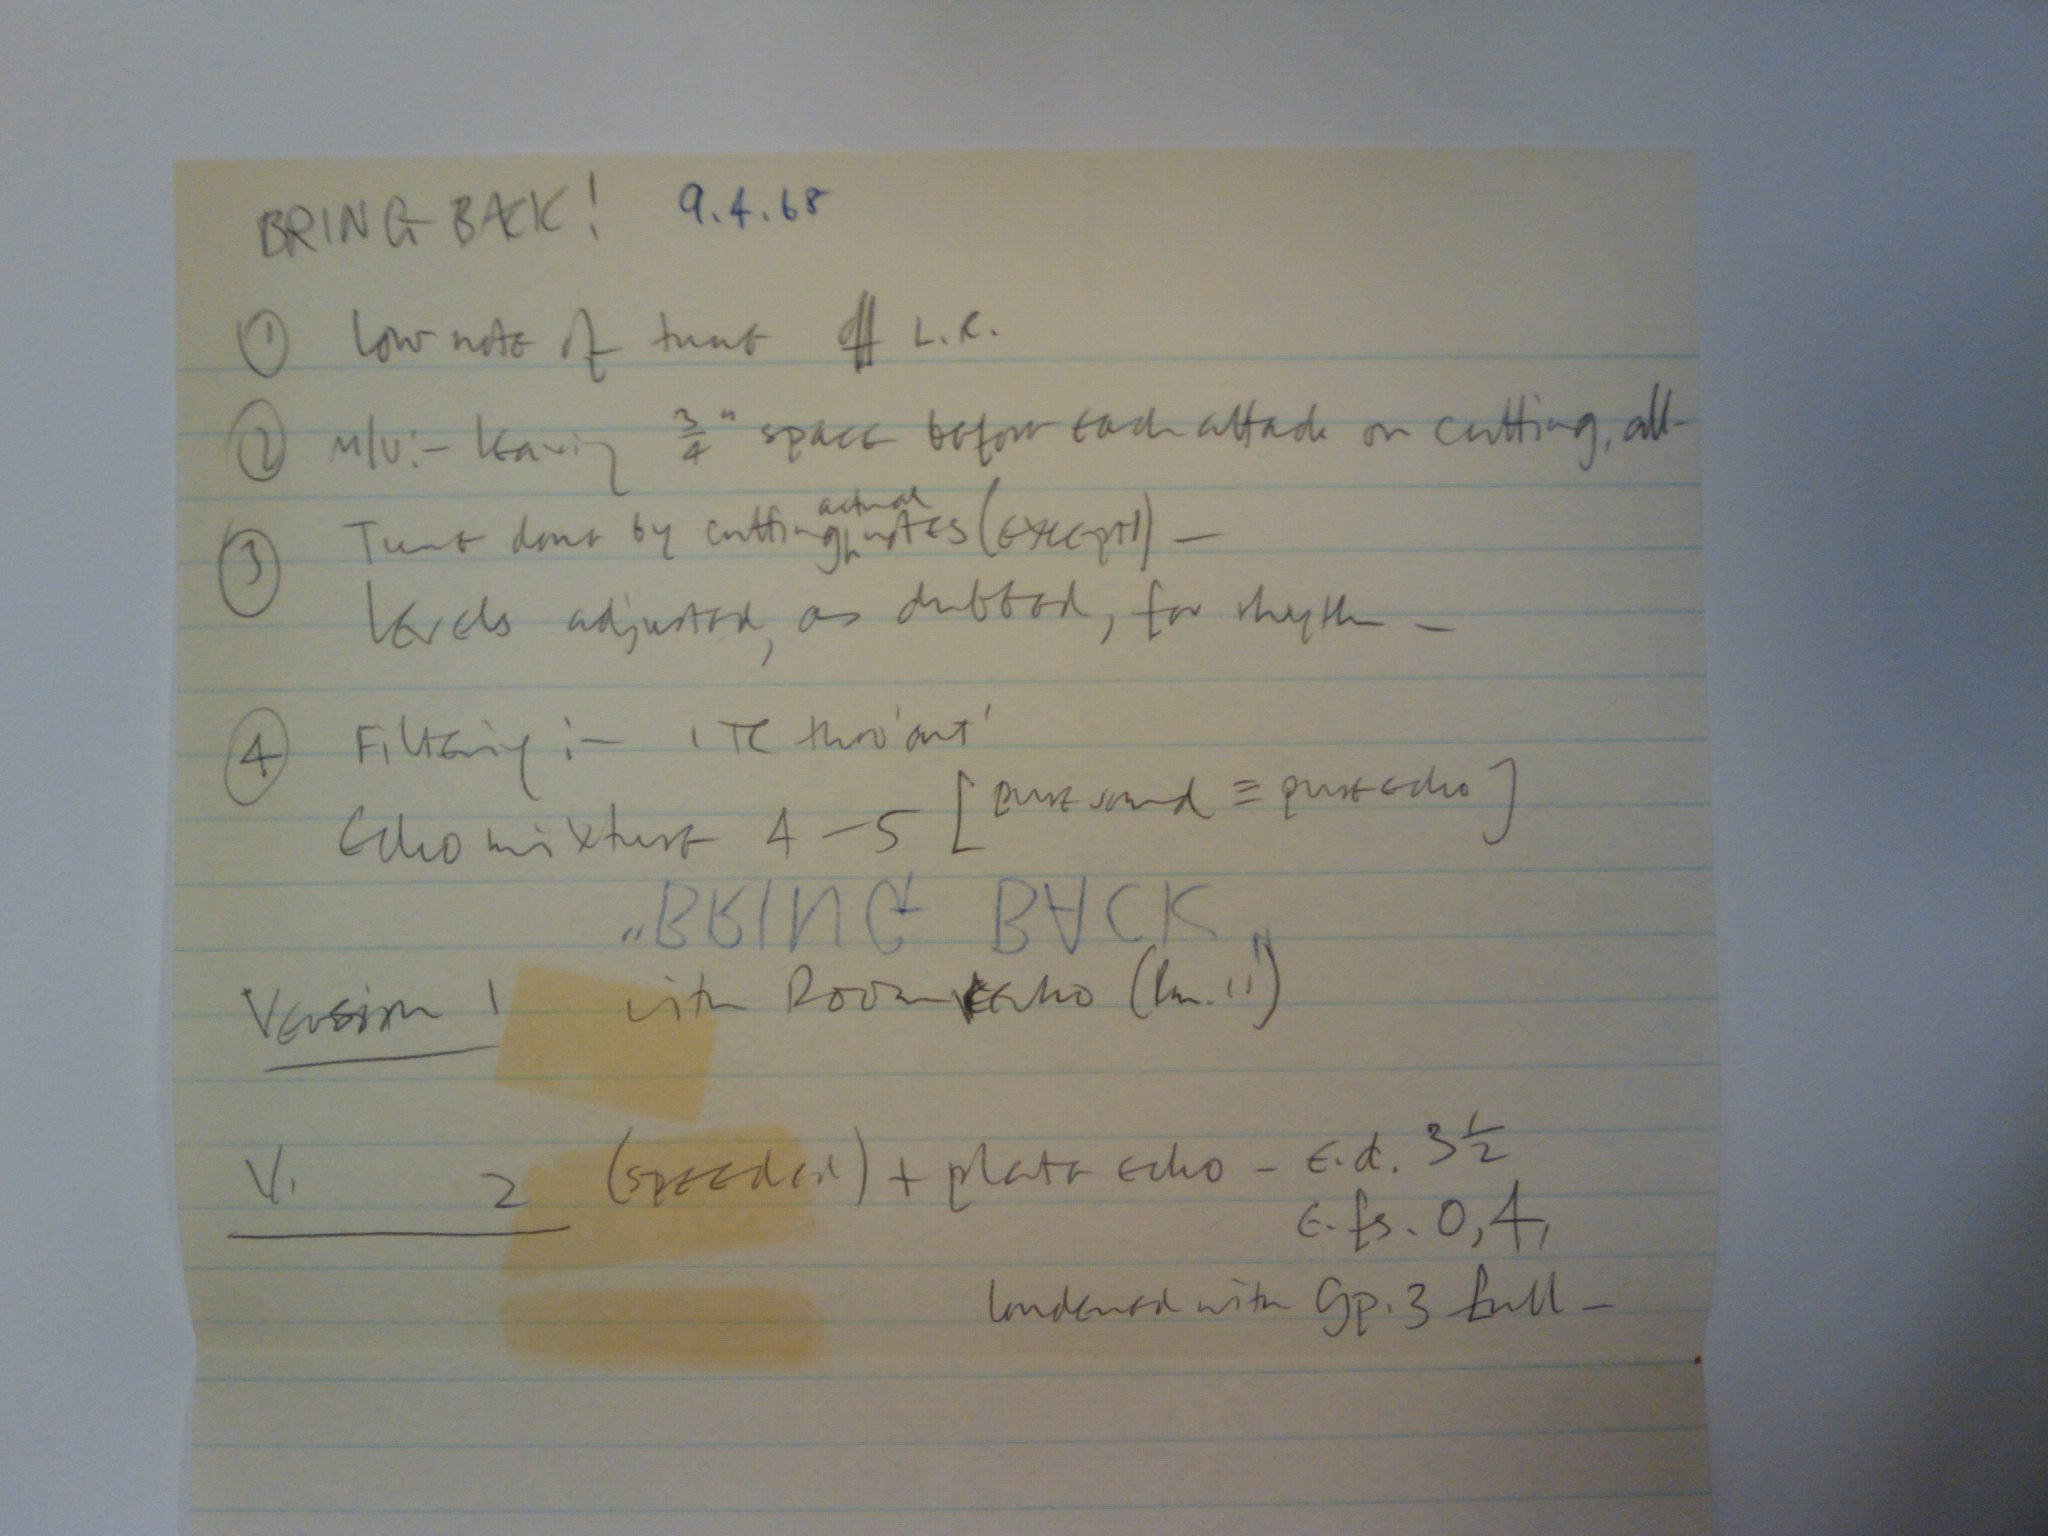 BRING BACK! 9.4.68
① Low note of tune ff L.R.
② M/V:- leaving 3/4" space before each attack on cutting, all-
③ Tune done by cutting actual notes (except 1) -
levels adjusted, as dubbed, for rhythm -
④ Filtering:- thro'out'
Echo mixture 4-5 [pure sound ≡ pure echo]
"BRING BACK"
Version 1 with Room echo (Rm. 11)
V. 2 (speeded) + plate echo - e.d. 3 1/2
e.fs. 0,4,
loudened with Gp.3 full -